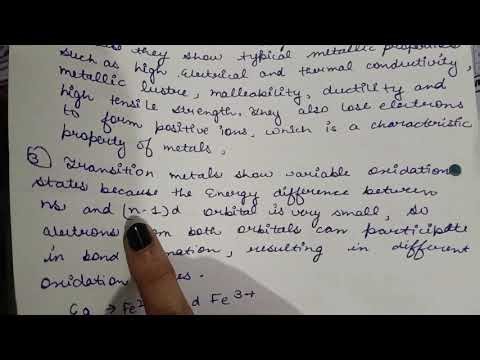 they show typical metallic properties
such as high electrical and thermal conductivity,
metallic lustre, malleability, ductility and
high tensile strength. They also lose electrons
to form positive ions, which is a characteristic
property of metals.
3) Transition metals show variable oxidation
states because the Energy difference between
ns and (n-1)d orbital is very small, so
electrons from both orbitals can participate
in bond mation, resulting in different
oxidation es.
→ Fe2 d Fe3+